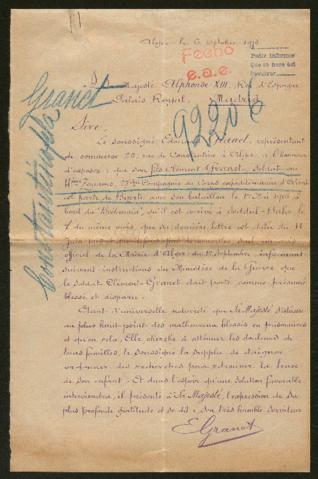 Alger le 6 Octobre 1915
Fecho
e.a.e.
Prière informer
Sa Majesté Alphonse XIII, Roi d'Espagne
Palais Royal, Madrid
Granet
Constantinople
92206
Sire,
Le soussigné Granet, représentant
de commerce 20, rue de Constantine à Alger, a l'honneur
d'exposer que son fils Clément Granet, soldat au
Compagnie du Corps expéditionnaire d'Orient
est parti de Bizerte avec son bataillon le 1er Mai 1915 à
bord du qu'il est arrivé à Seddul-Bahr le
7 du même mois, que sa dernière lettre est datée du 11
Juin
officiel de la Mairie d'Alger du 17 Septembre, informant
suivant instructions du Ministère de la Guerre que
le soldat Clément Granet était porté comme présumé
blessé et disparu.
Etant d'universelle notoriété que Sa Majesté s'intéresse
au plus haut point des malheureux blessés ou prisonniers
et qu'en cela, Elle cherche à atténuer les douleurs de
leurs familles, le soussigné la supplie de daigner
ordonner des recherches pour retrouver la trace
de son enfant. Et dans l'espoir qu'une solution favorable
interviendra, il présente à Sa Majesté, l'expression de sa
plus profonde gratitude et se dit son très humble serviteur
E. Granet